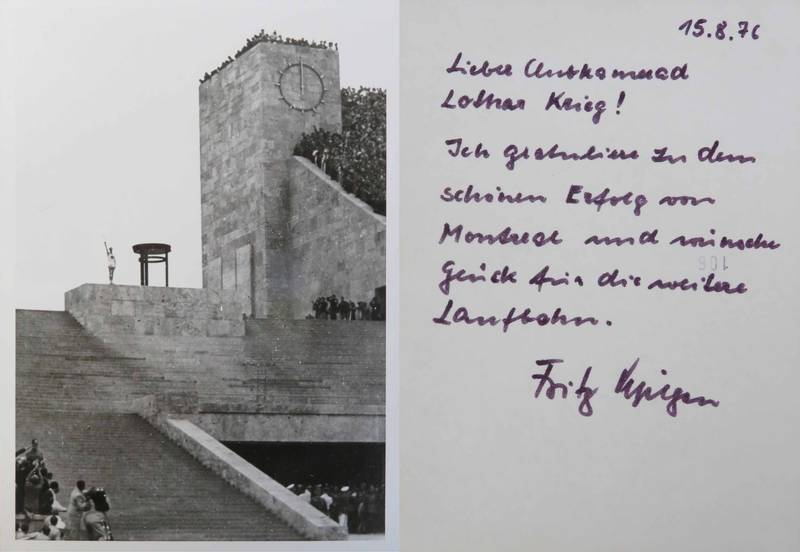 15.8.76
Lieber Clubkamerad
Lothar Krieg!
Ich gratuliere zu dem
schönen Erfolg von
Montreal und wünsche
Glück für die weitere
Laufbahn.
Fritz Schilgen